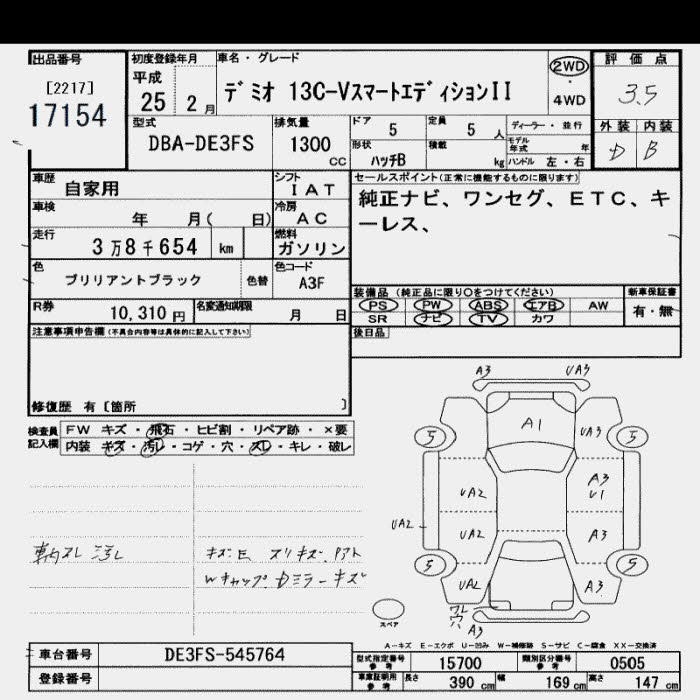 出品番号
[2217]
17154
初度登録年月
平成
25 2月
車名・グレード
デミオ 13C-VスマートエディションII
2WD
・
4WD
評価点
3.5
外装 内装
D B
型式
DBA-DE3FS
排気量
1300
CC
ドア 5
定員 5 人
ディーラー・並行
形状 ハッチB
積載 kg
モデル年式 年
ハンドル 左・右
車歴 自家用
シフト IAT
車検 年 月( 日)
冷房 AC
走行 3万8千654 km
燃料 ガソリン
色 ブリリアントブラック 色替
色コード A3F
R券 10,310円
名変通知期限 月 日
セールスポイント(正常に機能するものに限ります)
純正ナビ、ワンセグ、ETC、キ
ーレス、
装備品(純正品に限り○をつけてください)
新車保証書
PS PW ABS エアB AW
有・無
SR ナビ TV カワ
後日品
注意事項申告欄(不具合内容等は具体的に記入して下さい)
修復歴 有〔箇所 〕
検査員
記入欄
FW キズ・飛石・ヒビ割・リペア跡・×要
内装 キズ・汚レ・コゲ・穴・スレ・キレ・破レ
車内スレ 汚レ
キズE スリキズ
Wキャップ Dミラーキズ
A3 UA3
A1
5 UA3 5
UA2 A3
U1
UA2 UA2 A3
5 5
UA2 A3
ワレ
穴
A3
スペア
A−キズ E−エクボ U−凹み W−補修跡 S−サビ C−腐食 XX−交換済
車台番号 DE3FS-545764
登録番号
型式指定番号参考 15700
類別区分番号参考 0505
車庫証明用参考 長さ 390 cm 幅 169 cm 高さ 147 cm